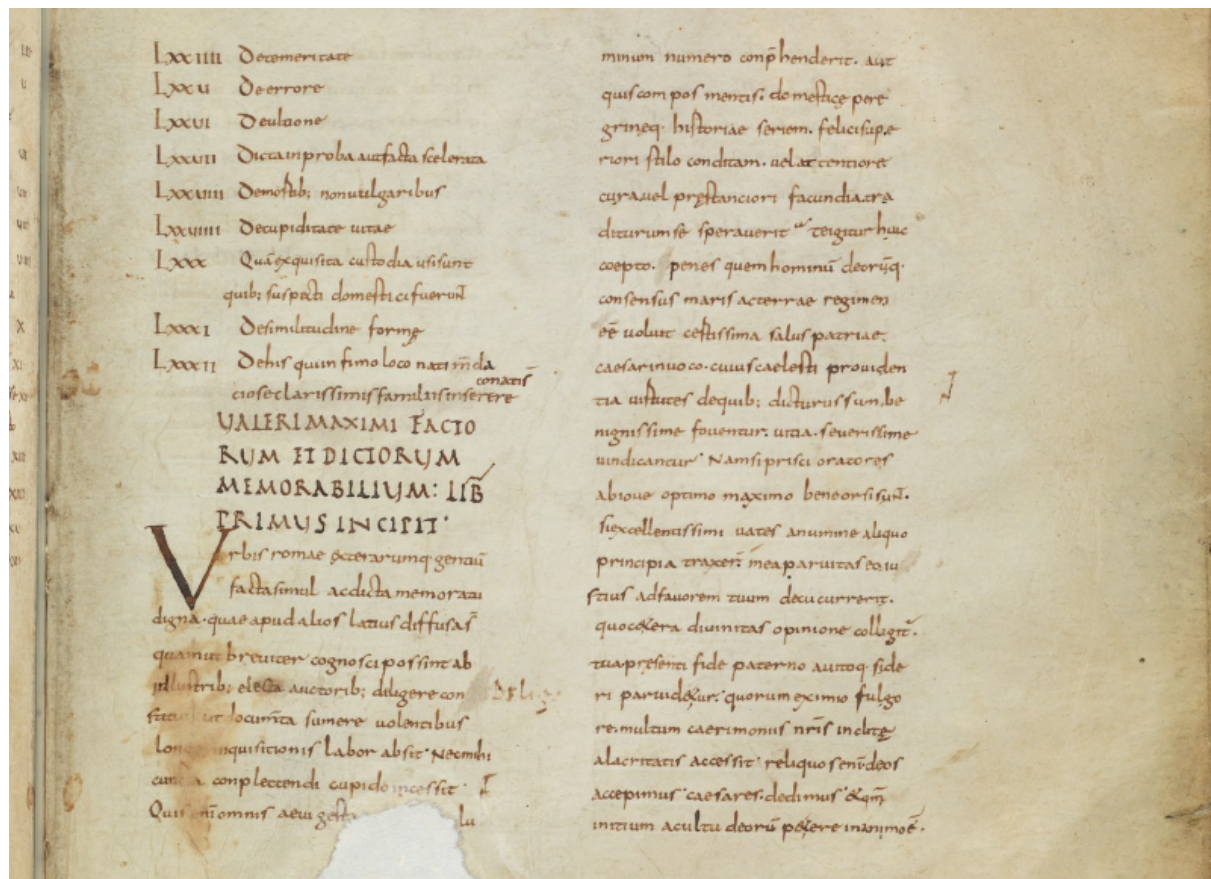 LXXIIII Detemeritate
LXXV Deerrore
LXXVI Deultione
LXXVII Dictainproba autfacta scelerata
LXXVIII Demortib; nonvulgaribus
LXXVIIII Decupiditate uitae
LXXX Quāexquisita custodia usisunt
quib; suspecti domesticifuerunt
LXXXI Desimilitudine formę
LXXXII Dehis quiinfimo loco nati
conatis
ciose clarissimis familiis inserere
UALERI MAXIMI FACTO
RUM ET DICTORUM
MEMORABILIUM: LIB
PRIMUS INCIPIT·
Urbis romae exterarumq; gentiū
factasimul acdicta memoratu
digna·quae apud alios latius diffusa s̄
quamut breuiter cognosci possint ab
inlustrib; electa auctorib; diligere con
stitui ut sumere uolentibus
longe inquisitionis labor absit· Necmihi
cuncta conplectendi cupido incessit·
Quis enī omnis aeui gesta lu
minum numero conp̄henderit· aut
quis compos mentis; domesticę pere
grinęq· historiae seriem· felici sup̲e
riori stilo conditam· uel at tentiore
cura uel pręstanciori facundia tra
diturum se sperauerit te igitur huic
coepto· penes quem hominū deorūq·
consensus maris ac terrae regimen
eē uoluit certissima salus patriae·
caesar inuoco· cuius caelesti prouiden
tia uirtutes dequib; dicturus sum, be
nignissime fouentur: uitia· seuerissime
uindicantur· Nam si prisci oratores
abioue optimo maximo bene orsi sunt·
siexcellentissimi uates anumine aliquo
principia traxer̄· mea paruitas eo iu
stius adfauorem tuum decucurrerit·
quo cetera diuinitas opinione colligit̄·
tua presenti fide paterno auitoq· side
ri par uidetur· quorum eximio fulgo
re· multum caerimoniis nr̄is inclitę
alacritatis accessit· reliquos enī deos
accepimus· caesares· dedimus· &qm̄
initium acultu deorū petere in animo ē·